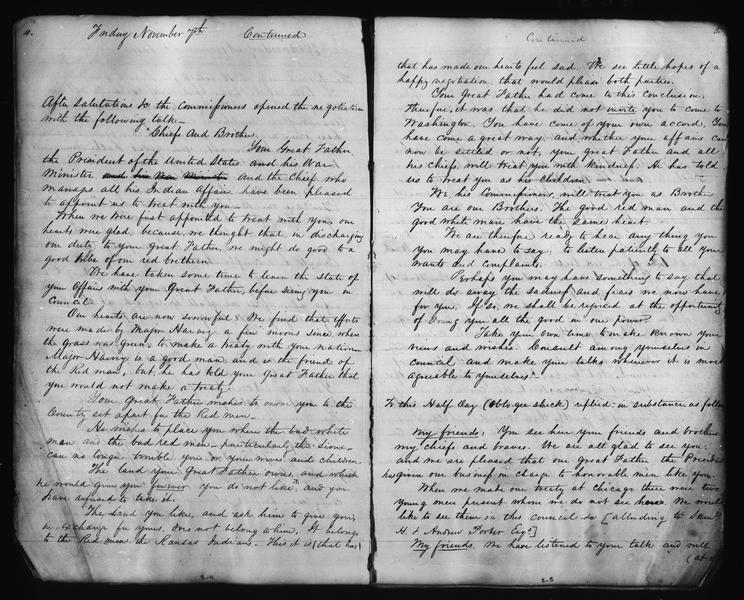 4.
Friday November 7th Continued
After salutations &c the commissioners opened the negotiation
with the following talk—
"Chiefs And Brothers,
Your Great Father
the President of the United States and his War
Minister and his War Minister and the Chief who
manages all his Indian Affairs have been pleased
to appoint us to treat with you—
When we were first appointed to treat with you, our
hearts were glad, because, we thought that, in discharging
our duty, to your Great Father, we might do good to a
good tribe of our red bretheren
We have taken some time to learn the state of
your Affairs with your Great Father, before seeing you in
Council.
Our hearts are now sorrowful. We find that efforts
were made by Major Harvey a few moons since when
the grass was green, to make a treaty with your nation.
Major Harvey is a good man, and is the friend of
the Red man, but he has told your Great Father that
you would not make a treaty.
Your Great Father wishes to move you to the
Country set apart for the Red men—
He wishes to place you where the bad white
man and the bad red men—particularly the Sioux—
can no longer trouble you or your wives and children.
The land your Great Father owns, and which
he would give you forever you do not like, and you
have refused to take it.
The Land you like, and ask him to give you,
in exchange for yours, does not belong to him. It belongs
to the Red men the Kansas Indians. This it is (that has)
24
Continued
that has made our hearts feel sad. We see little hopes of a
happy negotiation that would please both parties.
Your Great Father had come to this conclusion;
therefore, it was that he did not invite you to come to
Washington. You have come of your own accord. You
have come a great way, and whether your affairs can
now be settled or not, your great Father and all
his chiefs, will treat you with kindness. He has told
us to treat you as his children.
We his Commissioners, will treat you as Brothers
You are our Brothers. The good red man and the
good white man have the same heart.
We are therefore ready to hear any thing you
you may have to say; to listen patiently to all your
wants and complaints.
Perhaps you may have something to say that
will do away the sadness and fears we now have
for you. If so, we shall be rejoiced at the opportunity
of doing you all the good in our power.
Take your own time to make known your
views and wishes. Consult among yourselves in
council and make your talks whenever it is most
agreeable to yourselves."
To this Half Day (Ob-to-gee-sheck) replied in substance as follows
My friends. You see here your friends and brothers
my chiefs and braves. We are all glad to see you;
and we are pleased that our great Father the President
has given our business in charge to honorable men like you.
When we made our treaty at Chicago there were two
young men present whom we do not see here. We would
like to see them in this council &c [alluding to Saml
H. & Andrew Porter Esqs]
My friends. We have listened to your talk and will
25